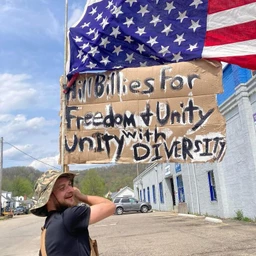 Hill Billies for
Freedom & Unity
Unity with DIVERSITY